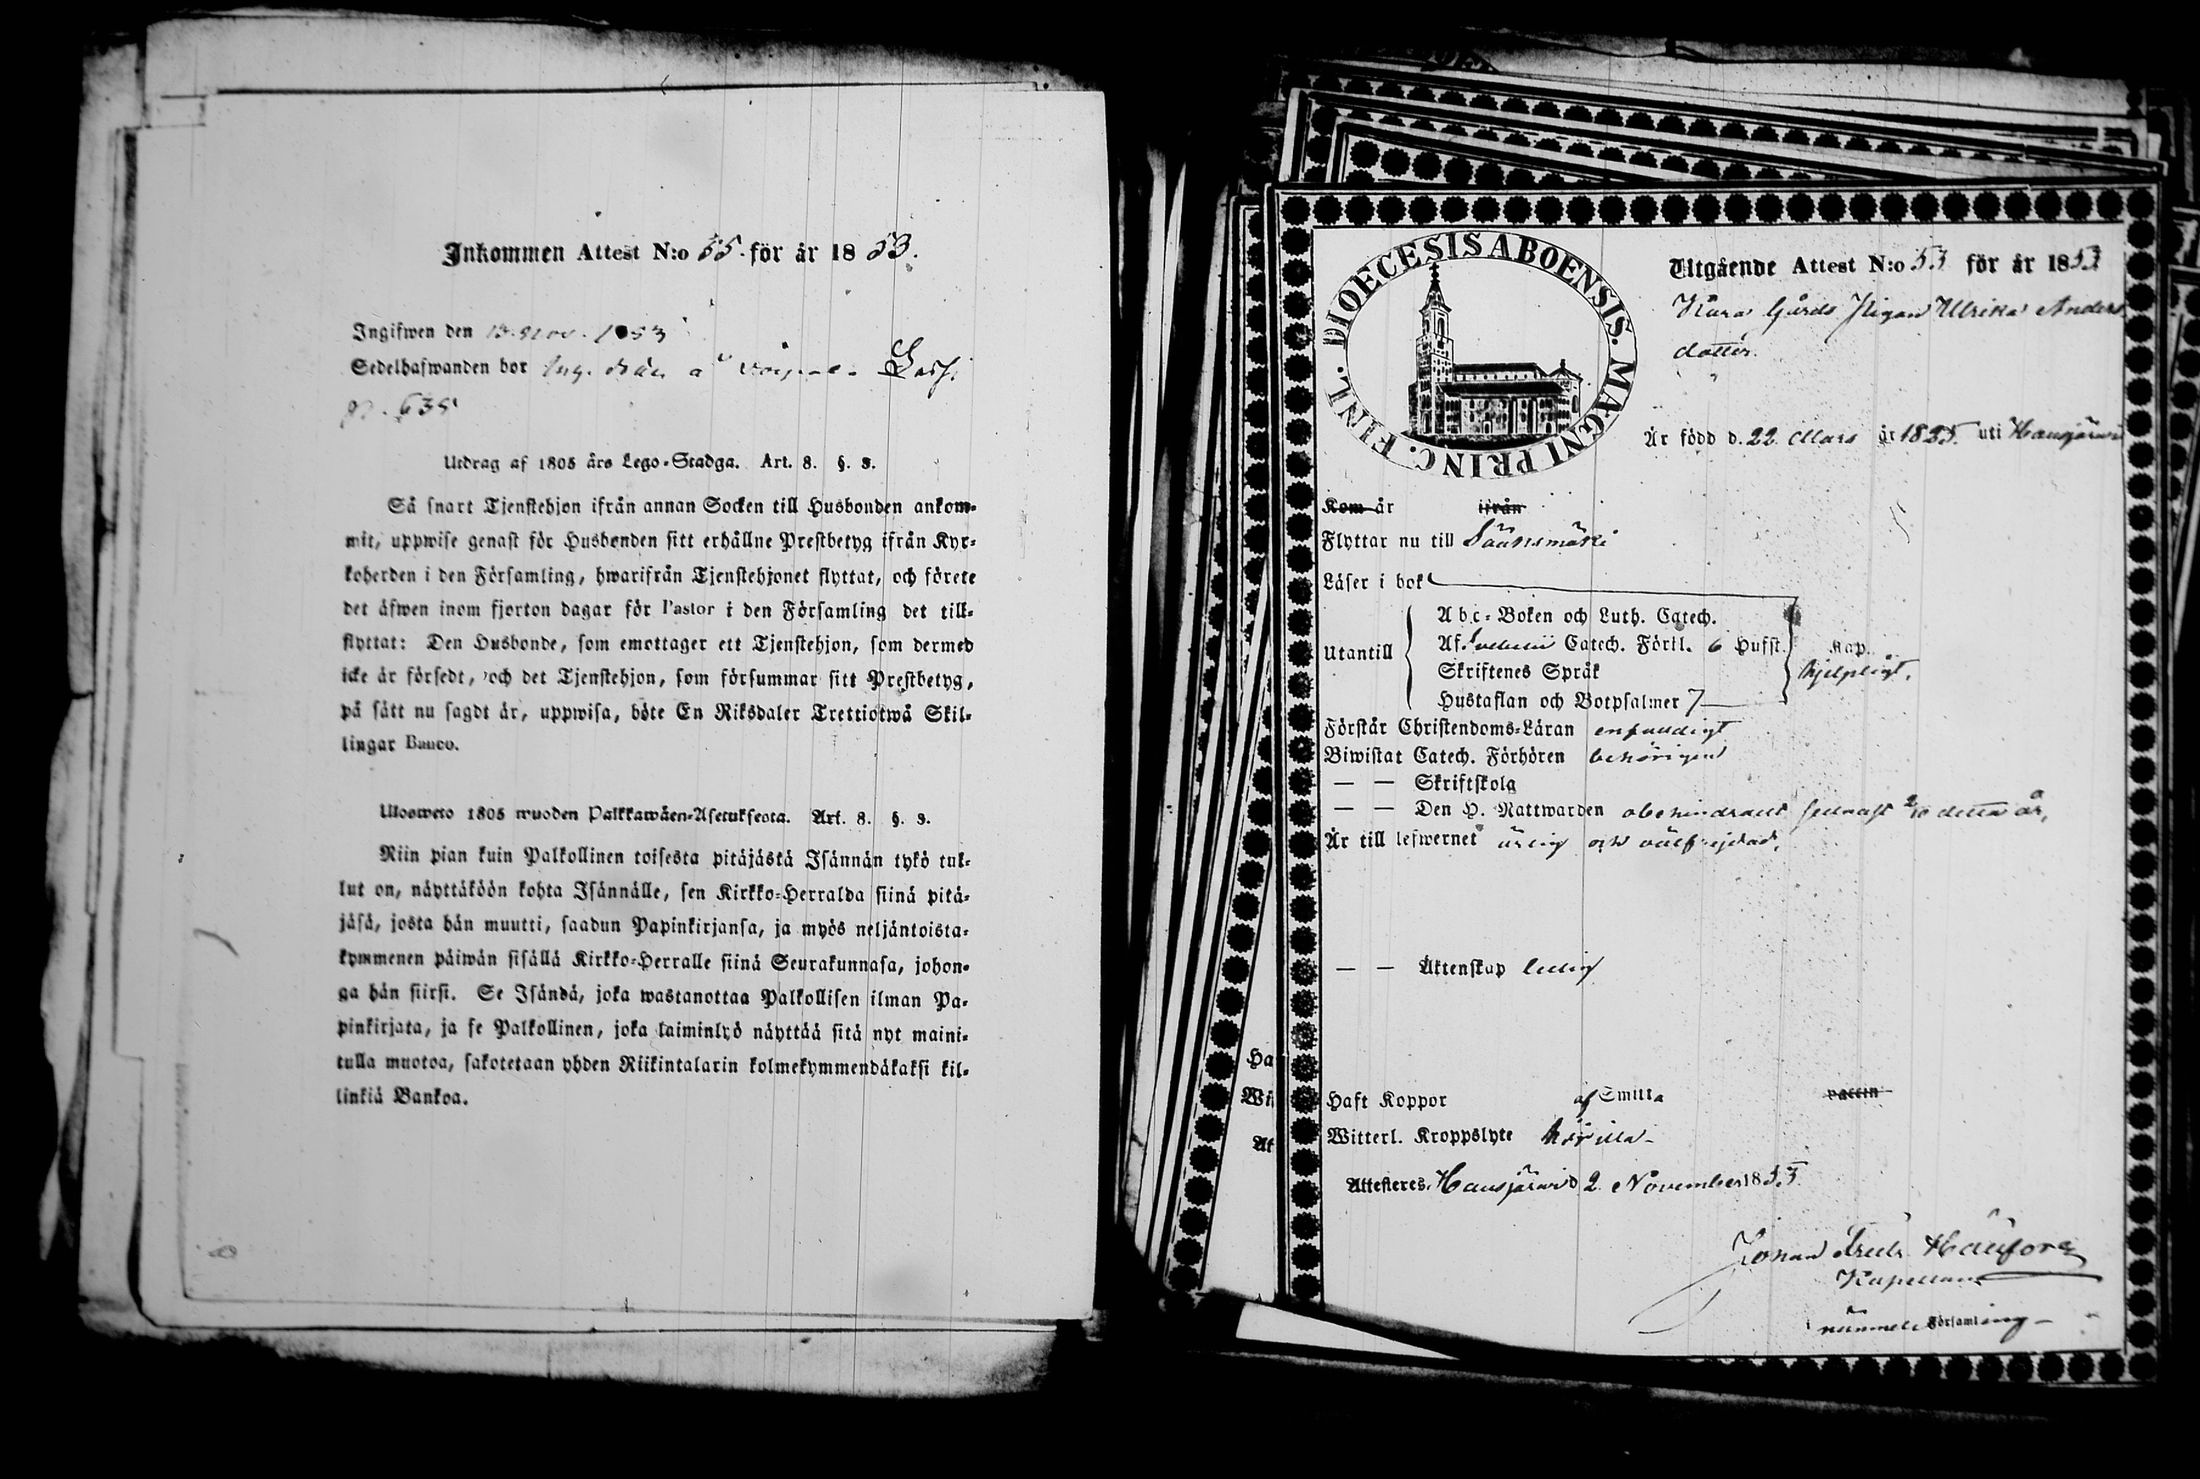 Inkommen Attest N:o 55. för år 1853.
Ingifwen den 13. Nov. 1853
Sedelhafwanden bor
p. 635
Utdrag af 1805 års Lego-Stadga. Art. 8. §. 3.
Så snart Tjenstehjon ifrån annan Socken till Husbonden ankom-
mit, uppwise genast för Husbonden sitt erhållne Prestbetyg ifrån Kyr-
koherden i den Församling, hwarifrån Tjenstehjonet flyttat, och förete
det äfwen inom fjorton dagar för Pastor i den Församling det till-
flyttat: Den Husbonde, som emottager ett Tjenstehjon, som dermed
icke är försedt, och det Tjenstehjon, som försummar sitt Prestbetyg,
på sätt nu sagdt är, uppwisa, böte En Riksdaler Trettiotwå Skil-
lingar Banco.
Ulosweto 1805 wuoden Palkkawäen-Asetuksesta. Art. 8. §. 3.
Niin pian kuin Palkollinen toisesta pitäjästä Isännän tykö tul-
lut on, näyttäköön kohta Isännälle, sen Kirkko-Herralda siinä pitä-
jäsä, josta hän muutti, saadun Papinkirjansa, ja myös neljäntoista-
kymmenen päiwän sisällä Kirkko-Herralle siinä Seurakunnasa, johon-
ga hän siirsi. Se Isändä, joka wastanottaa Palkollisen ilman Pa-
pinkirjata, ja se Palkollinen, joka laiminlyö näyttää sitä nyt maini-
tulla muotoa, sakotetaan yhden Riikintalarin kolmekymmendäkaksi kil-
linkiä Bankoa.
DIOECESIS ABOENSIS. MAGNI PRINC. FINL.
Utgående Attest N:o 53 för år 1853
Gårds Pigan Ulrika Anders
dotter.
Är född d. 22 Mars år 1835 uti Hausjärvi
Kom år ifrån
Flyttar nu till Sääksmäki
Läser i bok
Utantill
Abc-Boken och Luth. Catech.
Af Svebelii Catech. Förkl. 6 Hufst.
Skriftenes Språk
Hustaflan och Botpsalmer 7
Kap.
hjelpligt.
Förstår Christendoms-Läran enfaldigt
Biwistat Catech. Förhören behörigen
— — Skriftskola
— — Den H. Nattwarden obehindrad sednast detta år,
Är till lefwernet ärlig och välfrejdad.
— — Äktenskap ledig
Haft Koppor af Smitta vaccin
Witterl. Kroppslyte
Attesteres, Hausjärvi d 2 November 1853
Johan Fredr.
Kapellan
Församling
Ha
Wi
At